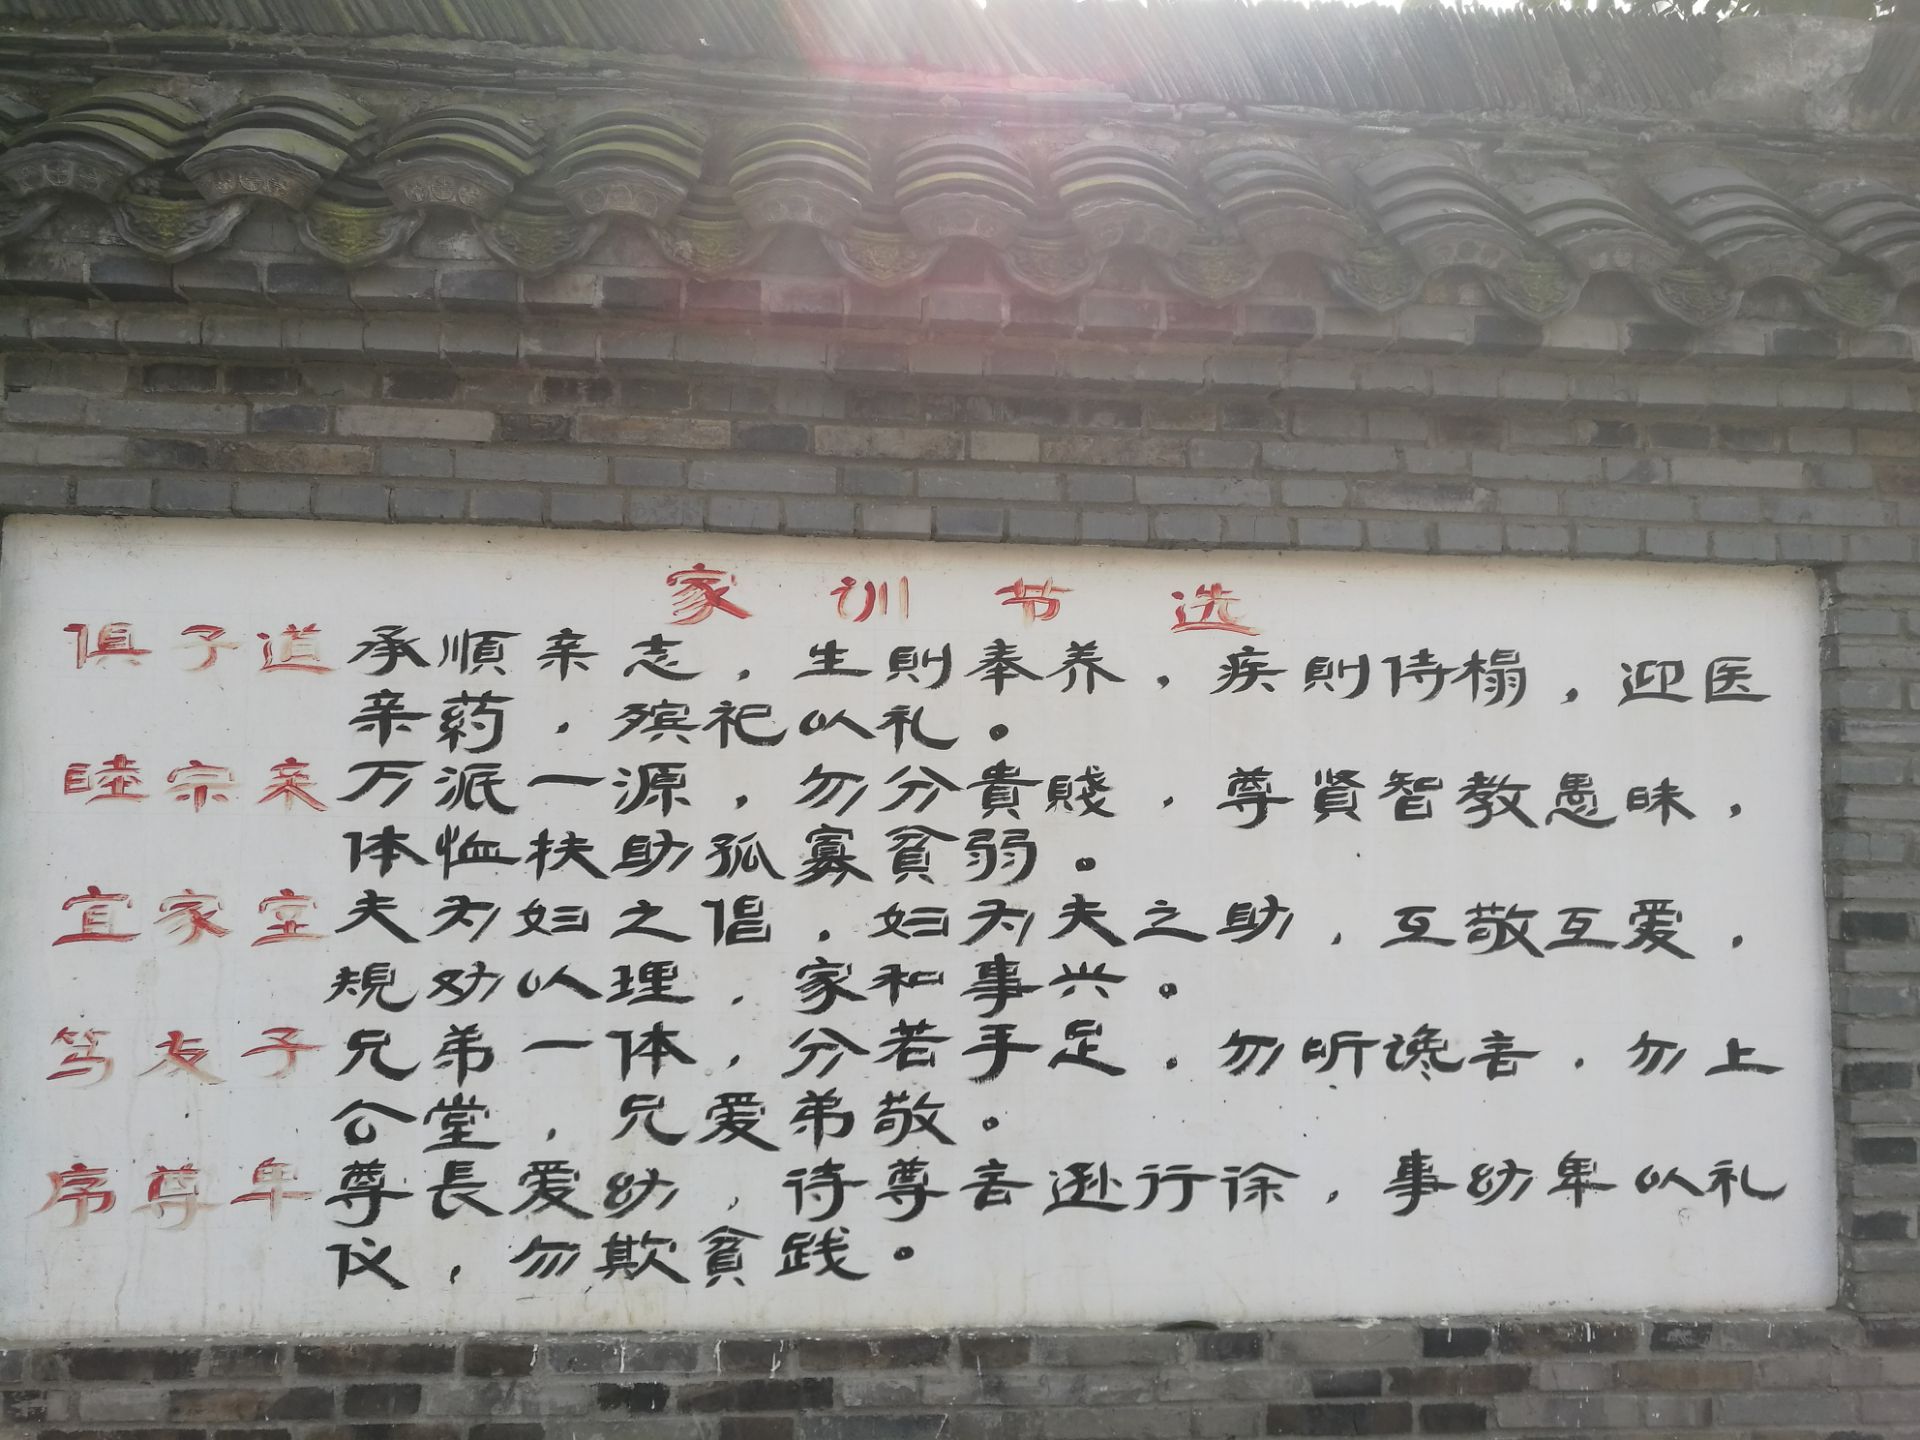 家训节选
俱子道 承順亲志，生則奉养，疾則侍榻，迎医
亲药，殡祀以礼。
睦宗亲 万派一源，勿分貴賤，尊贤智教愚昧，
体恤扶助孤寡貧弱。
宜家室 夫为妇之倡，妇为夫之助，互敬互爱，
規劝以理，家和事兴。
笃友子 兄弟一体，分若手足，勿听谗言，勿上
公堂，兄爱弟敬。
序尊卑 尊長爱幼，待尊言逊行徐，事幼卑以礼
仪，勿欺貧践。